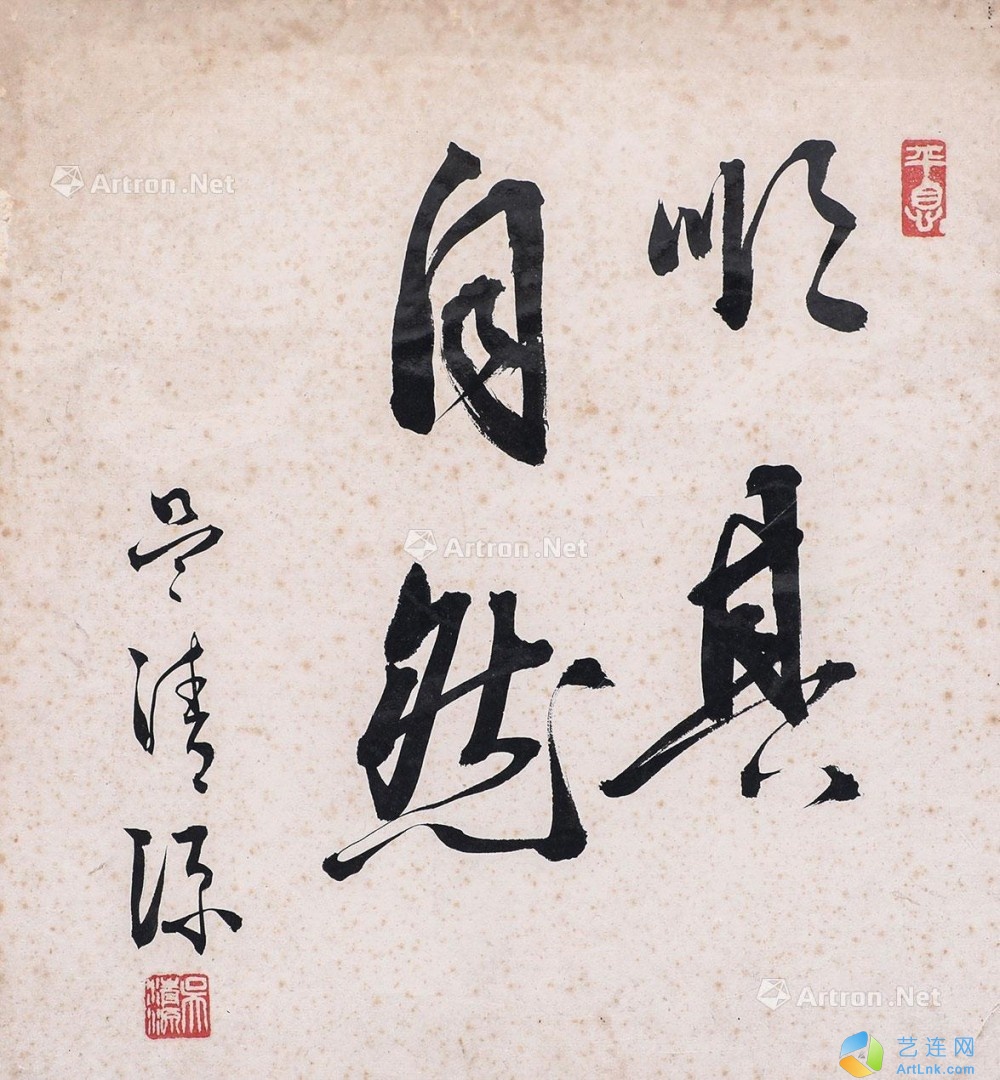 順其
自然
吳清源
吳清源
Artron.Net
Artron.Net
Artron.Net
艺连网
ArtLnk.com